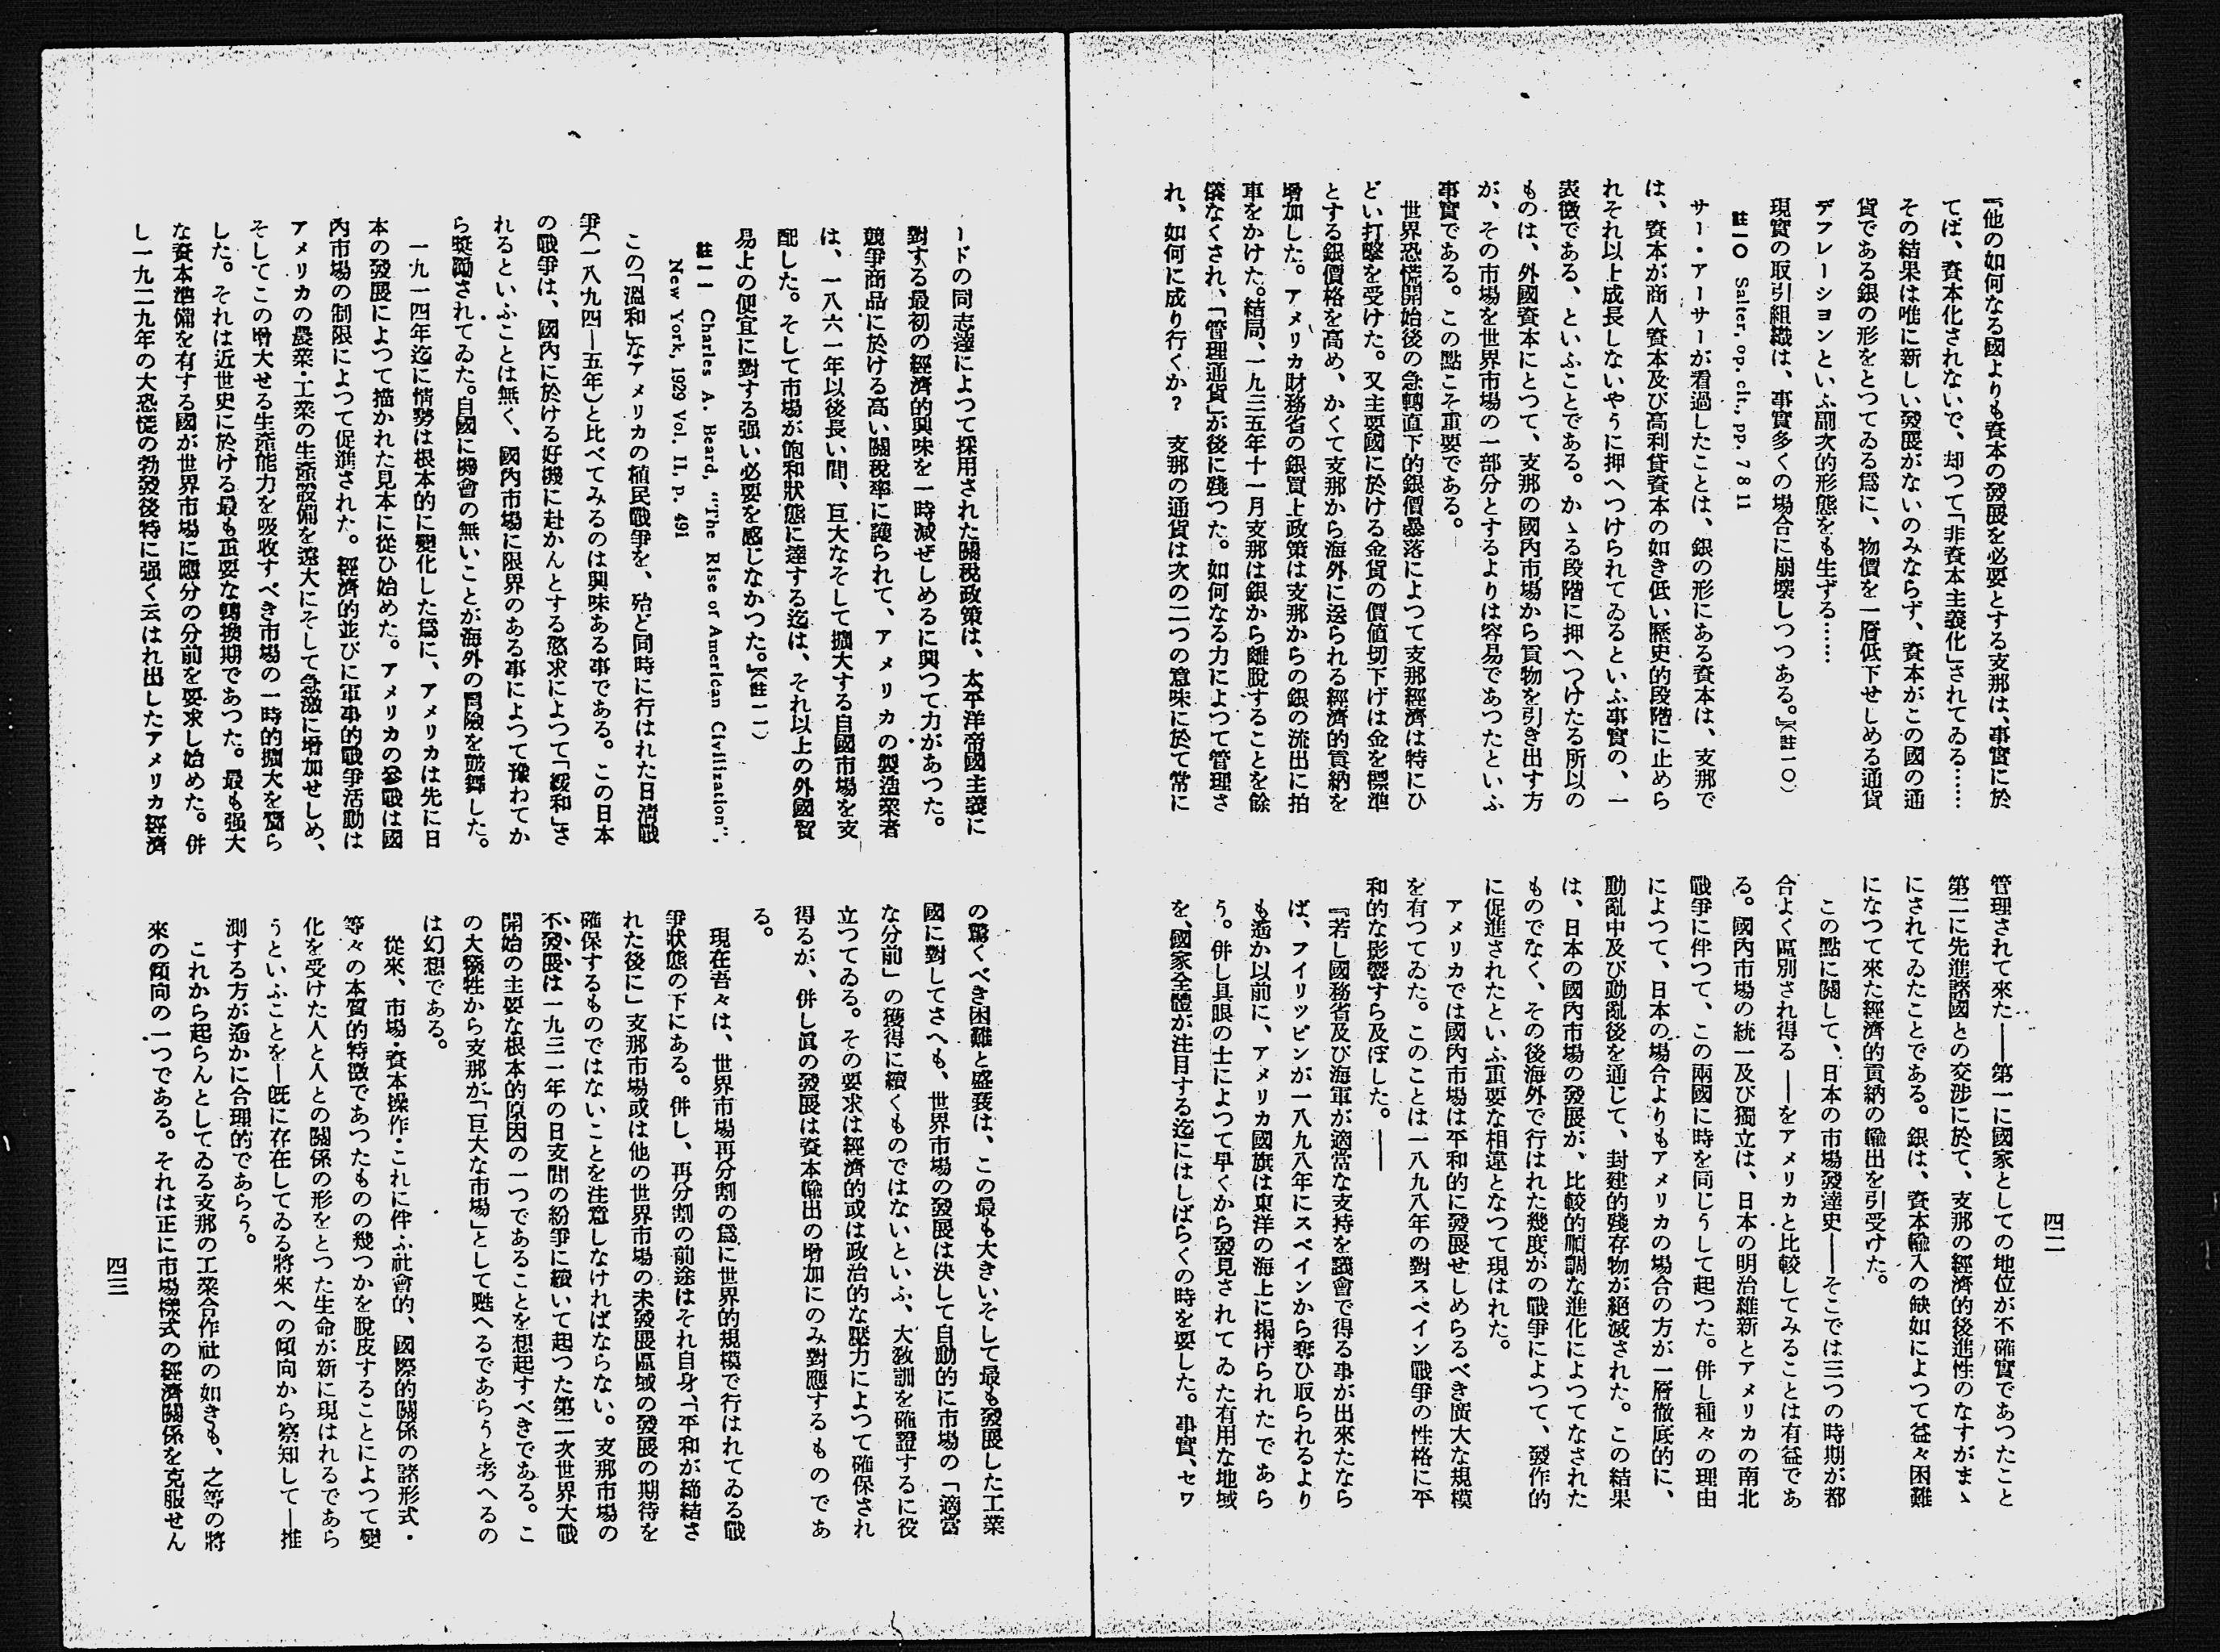 『他の如何なる國よりも資本の發展を必要とする支那は、事實に於
てば、資本化されないで、却つて「非資本主義化」されてゐる……
その結果は唯に新しい發展がないのみならず、資本がこの國の通
貨である銀の形をとつてゐる爲に、物價を一層低下せしめる通貨
デフレーションといふ副次的形態をも生ずる……
現實の取引組織は、事實多くの場合に崩壞しつつある。』(註一〇)
註一〇 Salter, op. cit., pp. 7 8 11
サー・アーサーが看過したことは、銀の形にある資本は、支那で
は、資本が商人資本及び高利貸資本の如き低い歷史的段階に止めら
れそれ以上成長しないやうに押へつけられてゐるといふ事實の、一
表徴である、といふことである。かゝる段階に押へつけたる所以の
ものは、外國資本にとつて、支那の國内市場から貢物を引き出す方
が、その市場を世界市場の一部分とするよりは容易であつたといふ
事實である。この點こそ重要である。
世界恐慌開始後の急轉直下的銀價暴落によつて支那經濟は特にひ
どい打擊を受けた。又主要國に於ける金貨の價値切下げは金を標準
とする銀價格を高め、かくて支那から海外に送られる經濟的貢納を
增加した。アメリカ財務省の銀買上政策は支那からの銀の流出に拍
車をかけた。結局、一九三五年十一月支那は銀から離脫することを餘
儀なくされ、「管理通貨」が後に殘つた。如何なる力によつて管理さ
れ、如何に成り行くか? 支那の通貨は次の二つの意味に於て常に
管理されて來た——第一に國家としての地位が不確實であつたこと
第二に先進諸國との交涉に於て、支那の經濟的後進性のなすがまゝ
にされてゐたことである。銀は、資本輸入の缺如によつて益々困難
になつて來た經濟的貢納の輸出を引受けた。
この點に關して、日本の市場發達史——そこでは三つの時期が都
合よく區別され得る——をアメリカと比較してみることは有益であ
る。國内市場の統一及び獨立は、日本の明治維新とアメリカの南北
戰爭に伴つて、この兩國に時を同じうして起つた。併し種々の理由
によつて、日本の場合よりもアメリカの場合の方が一層徹底的に、
動亂中及び動亂後を通じて、封建的殘存物が絕滅された。この結果
は、日本の國内市場の發展が、比較的順調な進化によつてなされた
ものでなく、その後海外で行はれた幾度かの戰爭によつて、發作的
に促進されたといふ重要な相違となつて現はれた。
アメリカでは國内市場は平和的に發展せしめらるべき廣大な規模
を有つてゐた。このことは一八九八年の對スペイン戰爭の性格に平
和的な影響すら及ぼした。——
『若し國務省及び海軍が適當な支持を議會で得る事が出來たなら
ば、フイリツピンが一八九八年にスペインから奪ひ取られるより
も遙か以前に、アメリカ國旗は東洋の海上に揭げられたであら
う。併し具眼の士によつて早くから發見されてゐた有用な地域
を、國家全體が注目する迄にはしばらくの時を要した。事實、セワ
四二
ードの同志達によつて採用された關稅政策は、太平洋帝國主義に
對する最初の經濟的興味を一時減ぜしめるに與つて力があつた。
競爭商品に於ける高い關稅率に護られて、アメリカの製造業者
は、一八六一年以後長い間、巨大なそして擴大する自國市場を支
配した。そして市場が飽和狀態に達する迄は、それ以上の外國貿
易上の便宜に對する强い必要を感じなかつた。』(註一一)
註一一 Charles A. Beard, "The Rise of American Civilization",
New York, 1929 Vol. II, p. 491
この「溫和」なアメリカの植民戰爭を、殆ど同時に行はれた日清戰
爭(一八九四—五年)と比べてみるのは興味ある事である。この日本
の戰爭は、國内に於ける好機に赴かんとする慾求によつて「緩和」さ
れるといふことは無く、國内市場に限界のある事によつて豫わてか
ら奬勵されてゐた。自國に機會の無いことが海外の冒險を鼓舞した。
一九一四年迄に情勢は根本的に變化した爲に、アメリカは先に日
本の發展によつて描かれた見本に從ひ始めた。アメリカの參戰は國
内市場の制限によつて促進された。經濟的並びに軍事的戰爭活動は
アメリカの農業・工業の生產設備を遼大にそして急激に增加せしめ、
そしてこの增大せる生產能力を吸收すべき市場の一時的擴大を齎ら
した。それは近世史に於ける最も重要な轉換期であつた。最も强大
な資本準備を有する國が世界市場に應分の分前を要求し始めた。併
し一九二九年の大恐慌の勃發後特に强く云はれ出したアメリカ經濟
の驚くべき困難と盛衰は、この最も大きいそして最も發展した工業
國に對してさへも、世界市場の發展は決して自動的に市場の「適當
な分前」の獲得に續くものではないといふ、大敎訓を確證するに役
立つてゐる。その要求は經濟的或は政治的な壓力によつて確保され
得るが、併し眞の發展は資本輸出の增加にのみ對應するものであ
る。
現在吾々は、世界市場再分割の爲に世界的規模で行はれてゐる戰
爭狀態の下にある。併し、再分割の前途はそれ自身、「平和が締結さ
れた後に」支那市場或は他の世界市場の未發展區域の發展の期待を
確保するものではないことを注意しなければならない。支那市場の
不發展は一九三一年の日支間の紛爭に續いて起つた第二次世界大戰
開始の主要な根本的原因の一つであることを想起すべきである。こ
の大犧牲から支那が「巨大な市場」として甦へるであらうと考へるの
は幻想である。
從來、市場・資本操作・これに伴ふ社會的、國際的關係の諸形式・
等々の本質的特徴であつたものの幾つかを脫皮することによつて變
化を受けた人と人との關係の形をとつた生命が新に現はれるであら
うといふことを—既に存在してゐる將來への傾向から察知して—推
測する方が遙かに合理的であらう。
これから起らんとしてゐる支那の工業合作社の如きも、之等の將
來の傾向の一つである。それは正に市場樣式の經濟關係を克服せん
四三